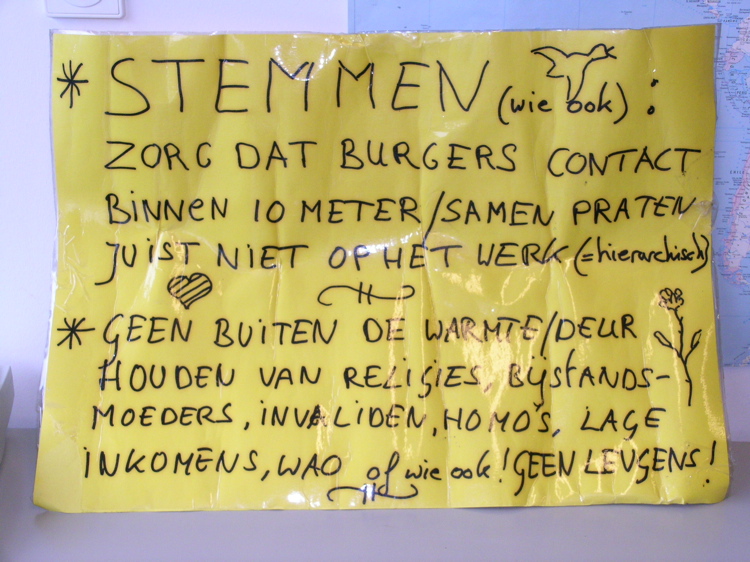 * STEMMEN (wie ook) :
ZORG DAT BURGERS CONTACT
BINNEN 10 METER/SAMEN PRATEN
JUIST NIET OP HET WERK (=hierarchisch)
* GEEN BUITEN DE WARMTE/DEUR
HOUDEN VAN RELIGIES, BIJSTANDS-
MOEDERS, INVALIDEN, HOMO'S, LAGE
INKOMENS, WAO of wie ook! GEEN LEUGENS!